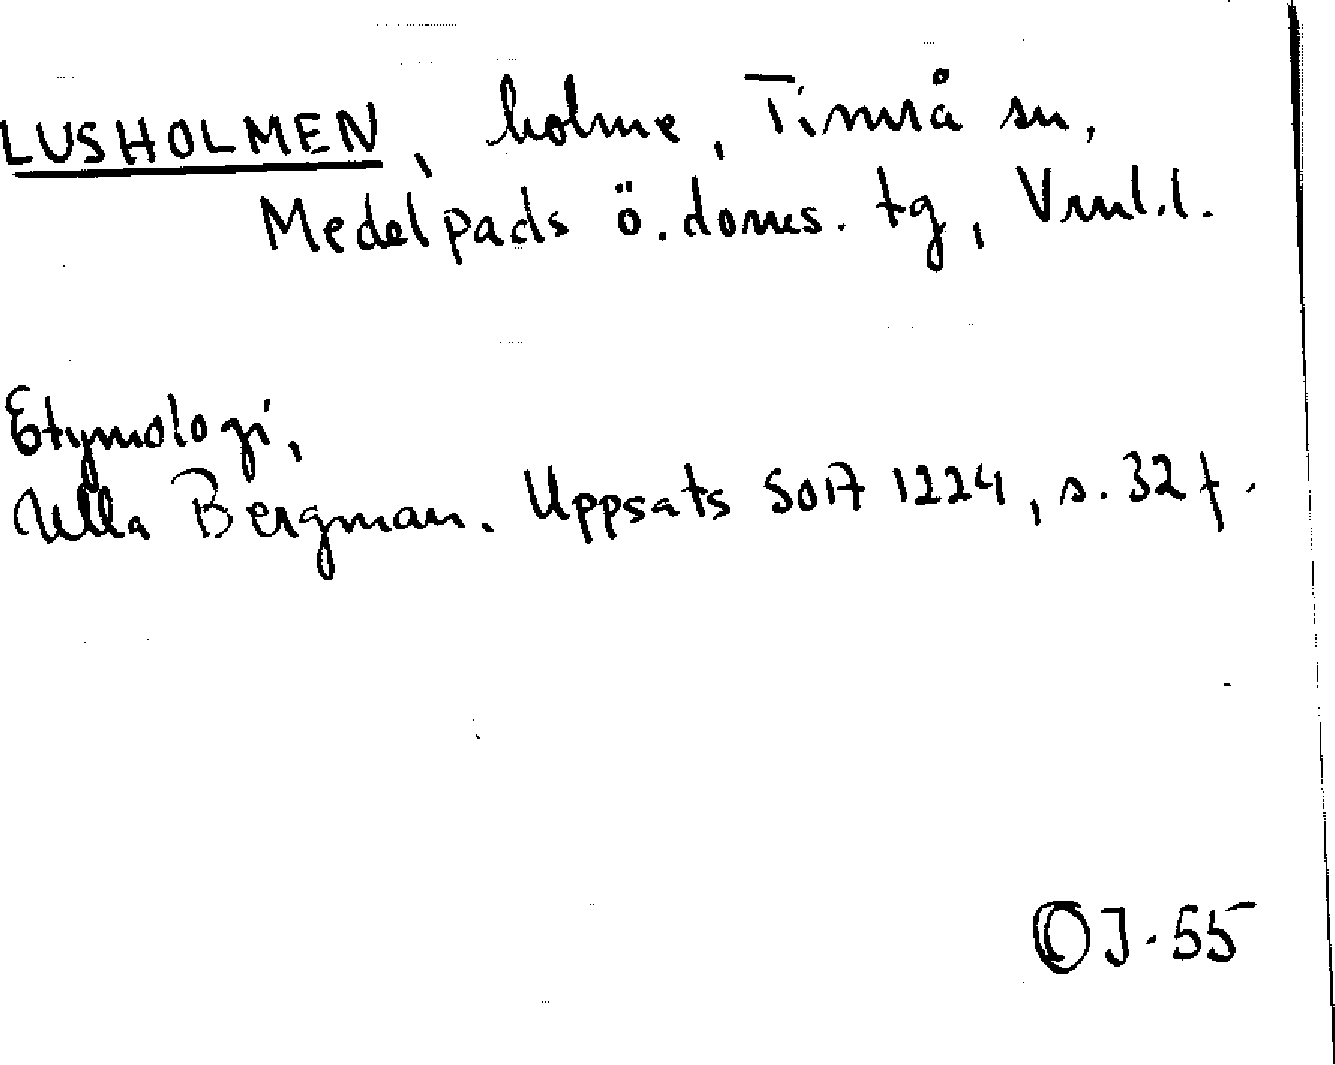 LUSHOLMEN, holme, Timrå sn,
Medelpads ö. doms. tg, Vnl.l.
Etymologi,
Ulla Bergman. Uppsats SOA 1224, s. 32 f.
OJ-55